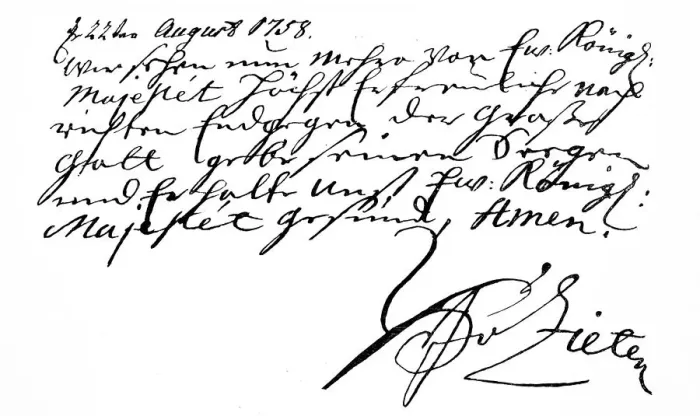 22ten August 1758.
Wir sehen nun mehro von Ew: Königl:
Majestét höchst Erfreuliche nach
richten Endgegen der Große
Gott gebe seinen Seegen
und Erhalte unß Ew: Königl:
Majestét gesund, Amen.
v Zieten